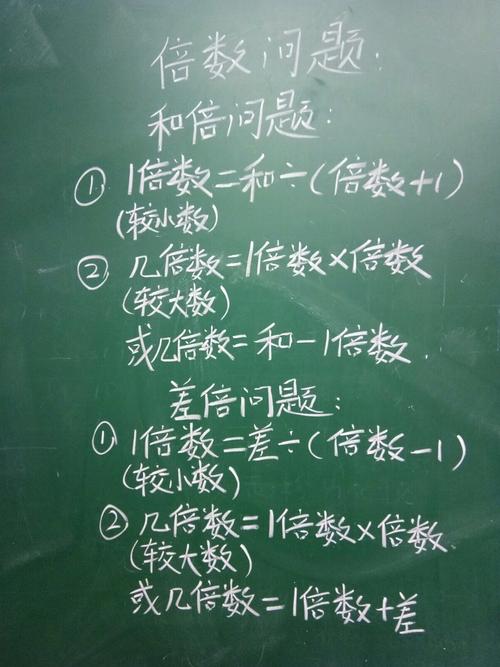 倍数问题:
和倍问题:
① 1倍数=和÷(倍数+1)
(较小数)
② 几倍数=1倍数×倍数
(较大数)
或几倍数=和-1倍数.
差倍问题:
① 1倍数=差÷(倍数-1)
(较小数)
② 几倍数=1倍数×倍数.
(较大数)
或几倍数=1倍数+差